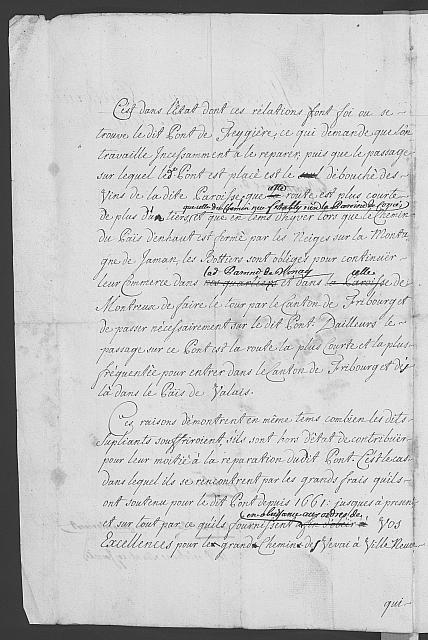 C'est dans l'état dont ces rélations font foi ou se-
trouve le dit Pont de Feygière, ce qui demande que l'on
travaille Incessamment a le reparer, puis que le passage
sur lequel led.t Pont est placé est le debouché des
Vins de la dite Paroisse, que cette route est plus courte
que celle du Chemin neuf établi rière la Paroisse de
de plus d'un tiers et que en tems d'hyver lors que le Chemin
du Païs d'enhaut est fermé par les Neiges sur la Monta-
gne de Jaman, les Bottiers sont obligés pour continuer
lad. Paroisse de Blonay celle
leur commerce dans nos quartiers et dans la Paroisse de
Montreux de faire le tour par le Canton de Fribourg et
de passer nécessairement sur le dit Pont. D'ailleurs le-
passage sur ce Pont est la route la plus courte et la plus
fréquentée pour entrer dans le Canton de Fribourg et dé
là dans le Païs de Valais.
Ces raisons démontrent en même tems combien les dits
Supliants souffriroient, s'ils sont hors d'état de contribuer
pour leur moitié à la reparation du dit Pont. C'est le cas
dans lequel ils se rencontrent par les grands frais qu'ils
ont soutenu pour le dit Pont depuis 1661. jusques à present
en obéissance aux ordres de
et sur tout par ce qu'ils fournissent afin d'obéir à Vos
Excellences pour le grand Chemin de Vevai à Ville Neuve
qui-